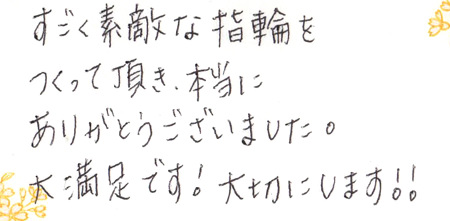 すごく素敵な指輪を
つくって頂き、本当に
ありがとうございました。
大満足です！大切にします！！